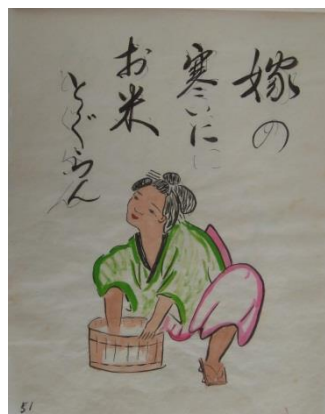 嫁の
寒いに
お米
とぐらん
51